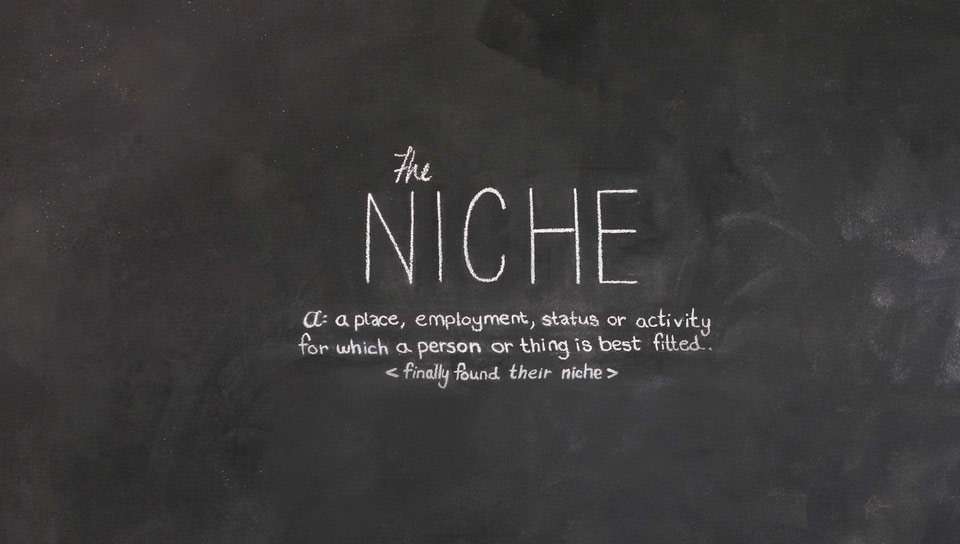 The
NICHE
a: a place, employment, status or activity
for which a person or thing is best fitted..
<finally found their niche>